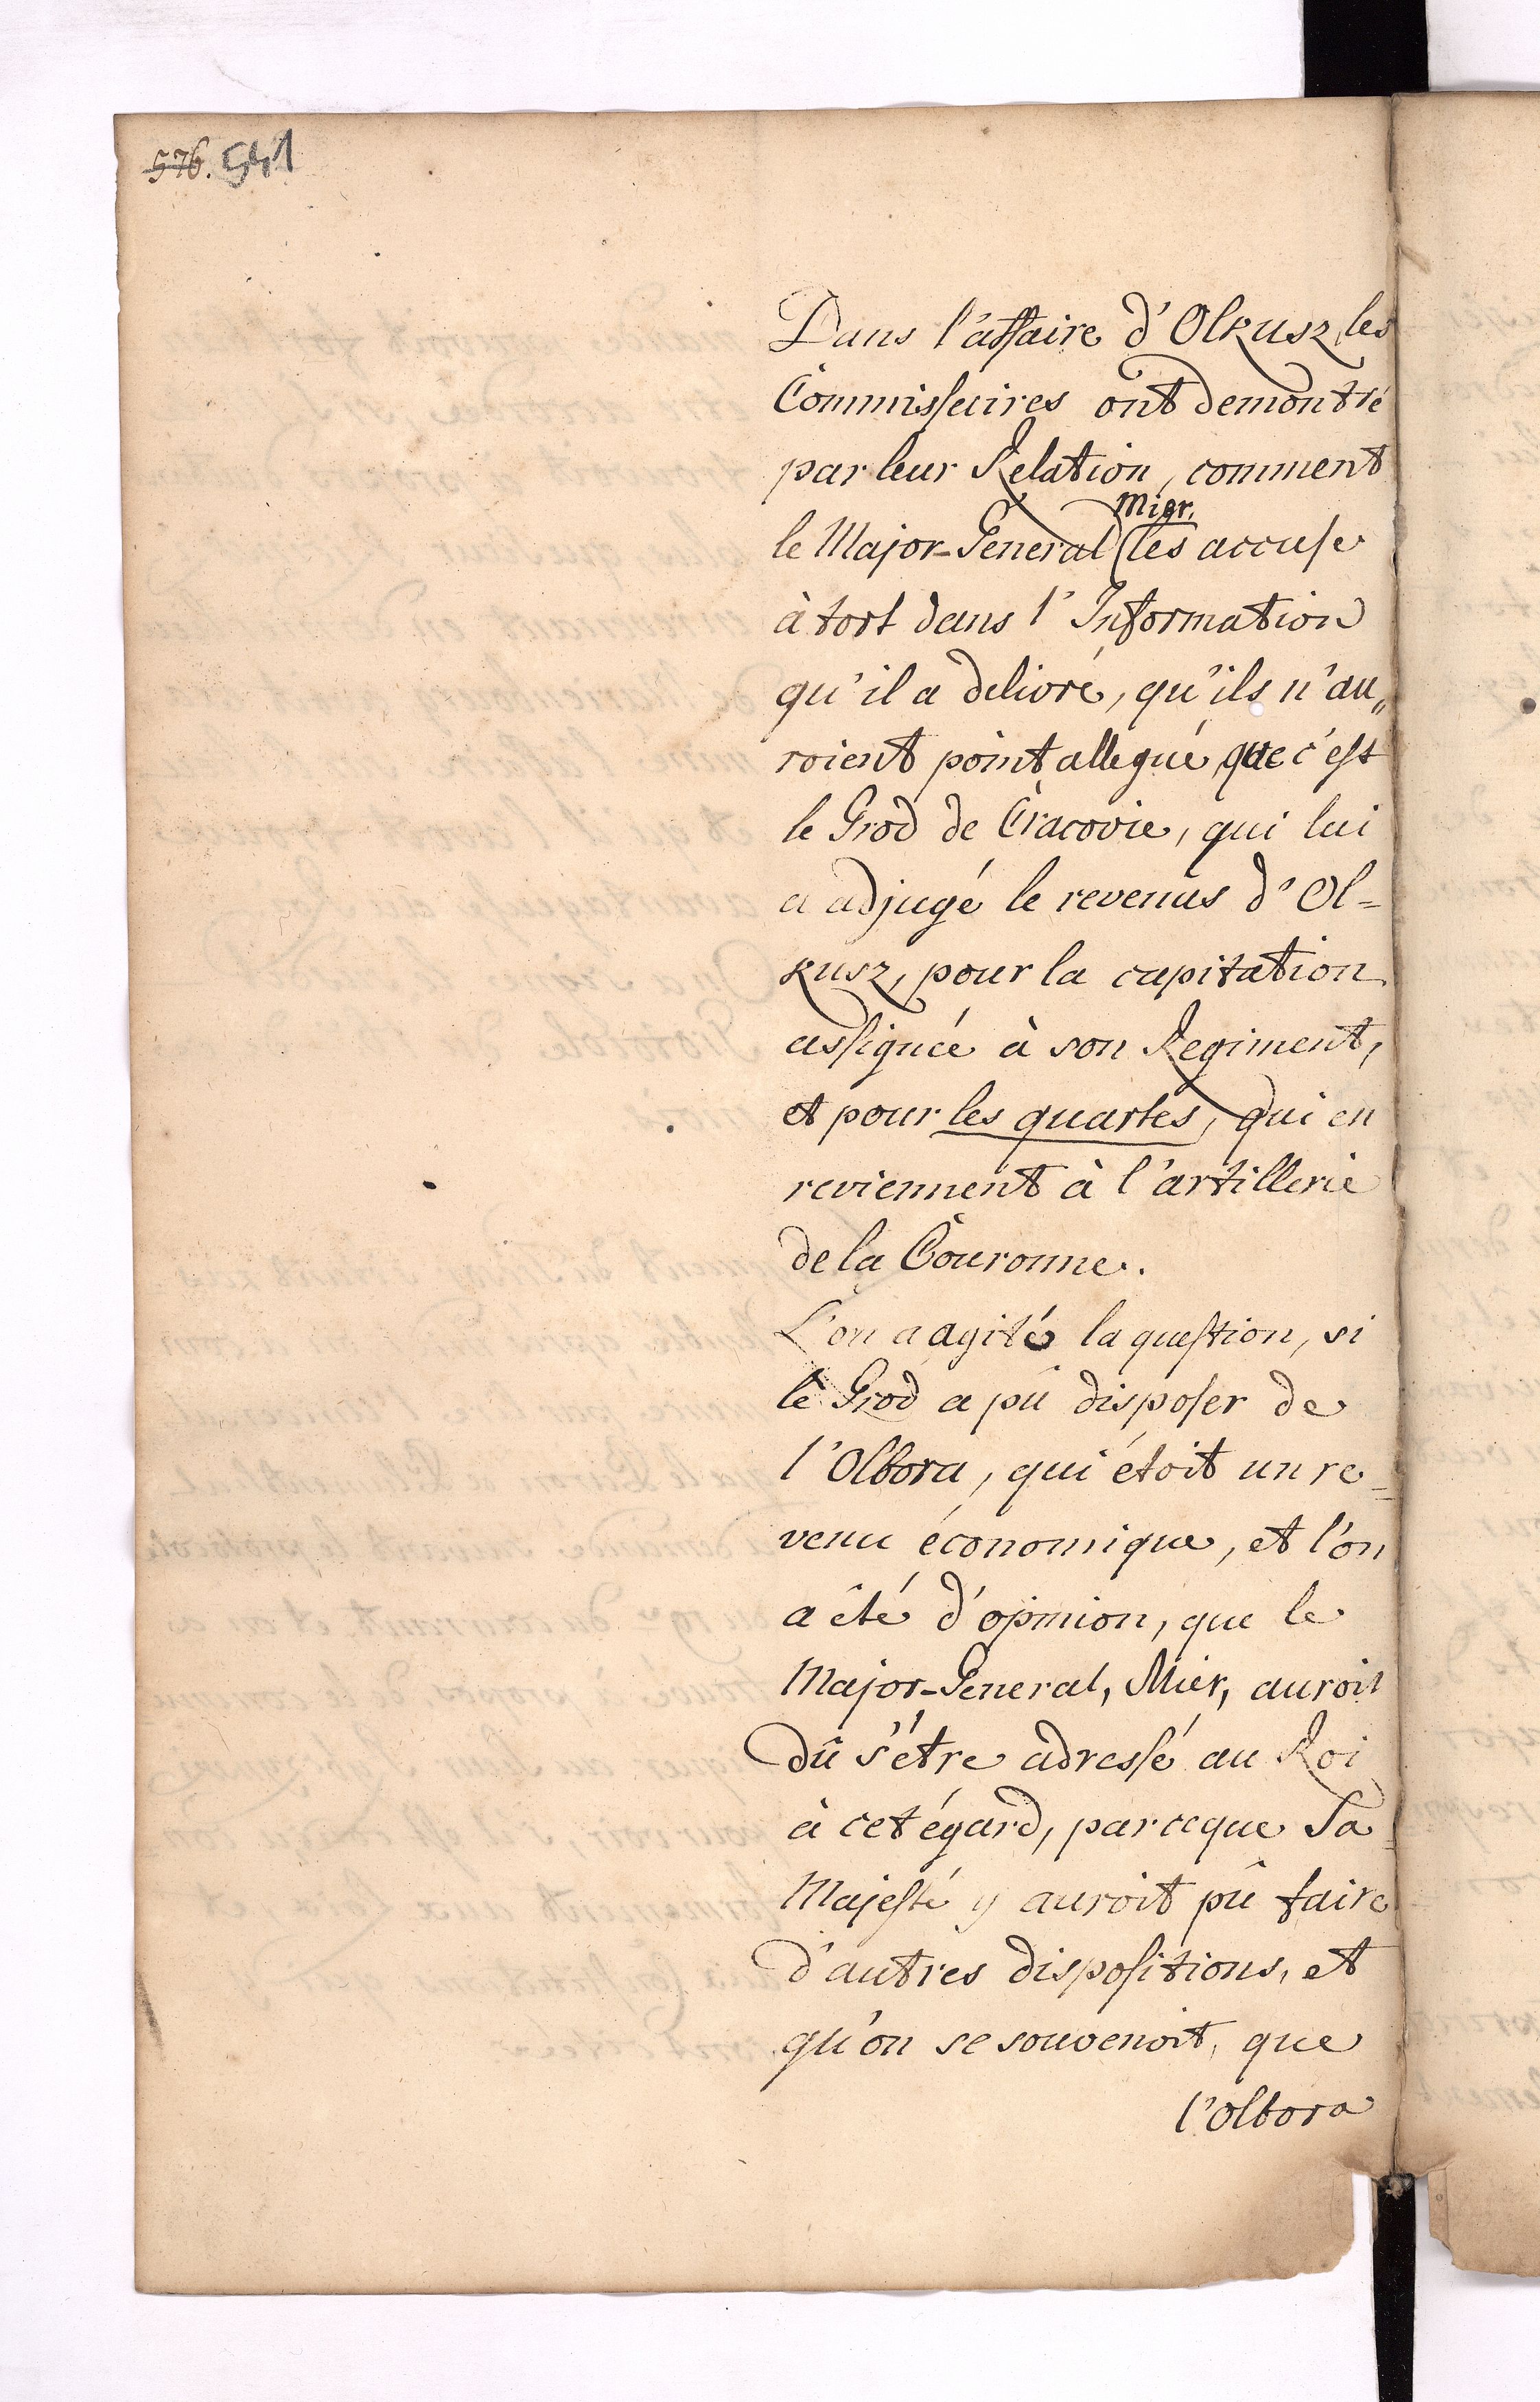 576. 541
Dans l'affaire d'Olkusz, les
Commissaires ont demontré
par leur Relation, comment
Mier.
le Major-General les accuse
à tort dans l'Information
qu'il a delivré, qu'ils n'au„
roient point allegué, que c'est
le Grod de Cracovie, qui lui
a adjugé le revenus d'Ol=
kusz, pour la capitation
assignée à son Regiment,
et pour les quartes, qui en
reviennent à l'artillerie
de la Couronne.
L'on a agité la question, si
le Grod a pû disposer de
l'Olbora, qui étoit un re=
venu économique, et l'on
a été d'opinion, que le
Major-General, Mier, auroit
dû s'être adressé au Roi
à cet égard, parceque Sa
Majesté y auroit pû faire
d'autres dispositions, et
qu'on se souvenoit, que
l'olbora